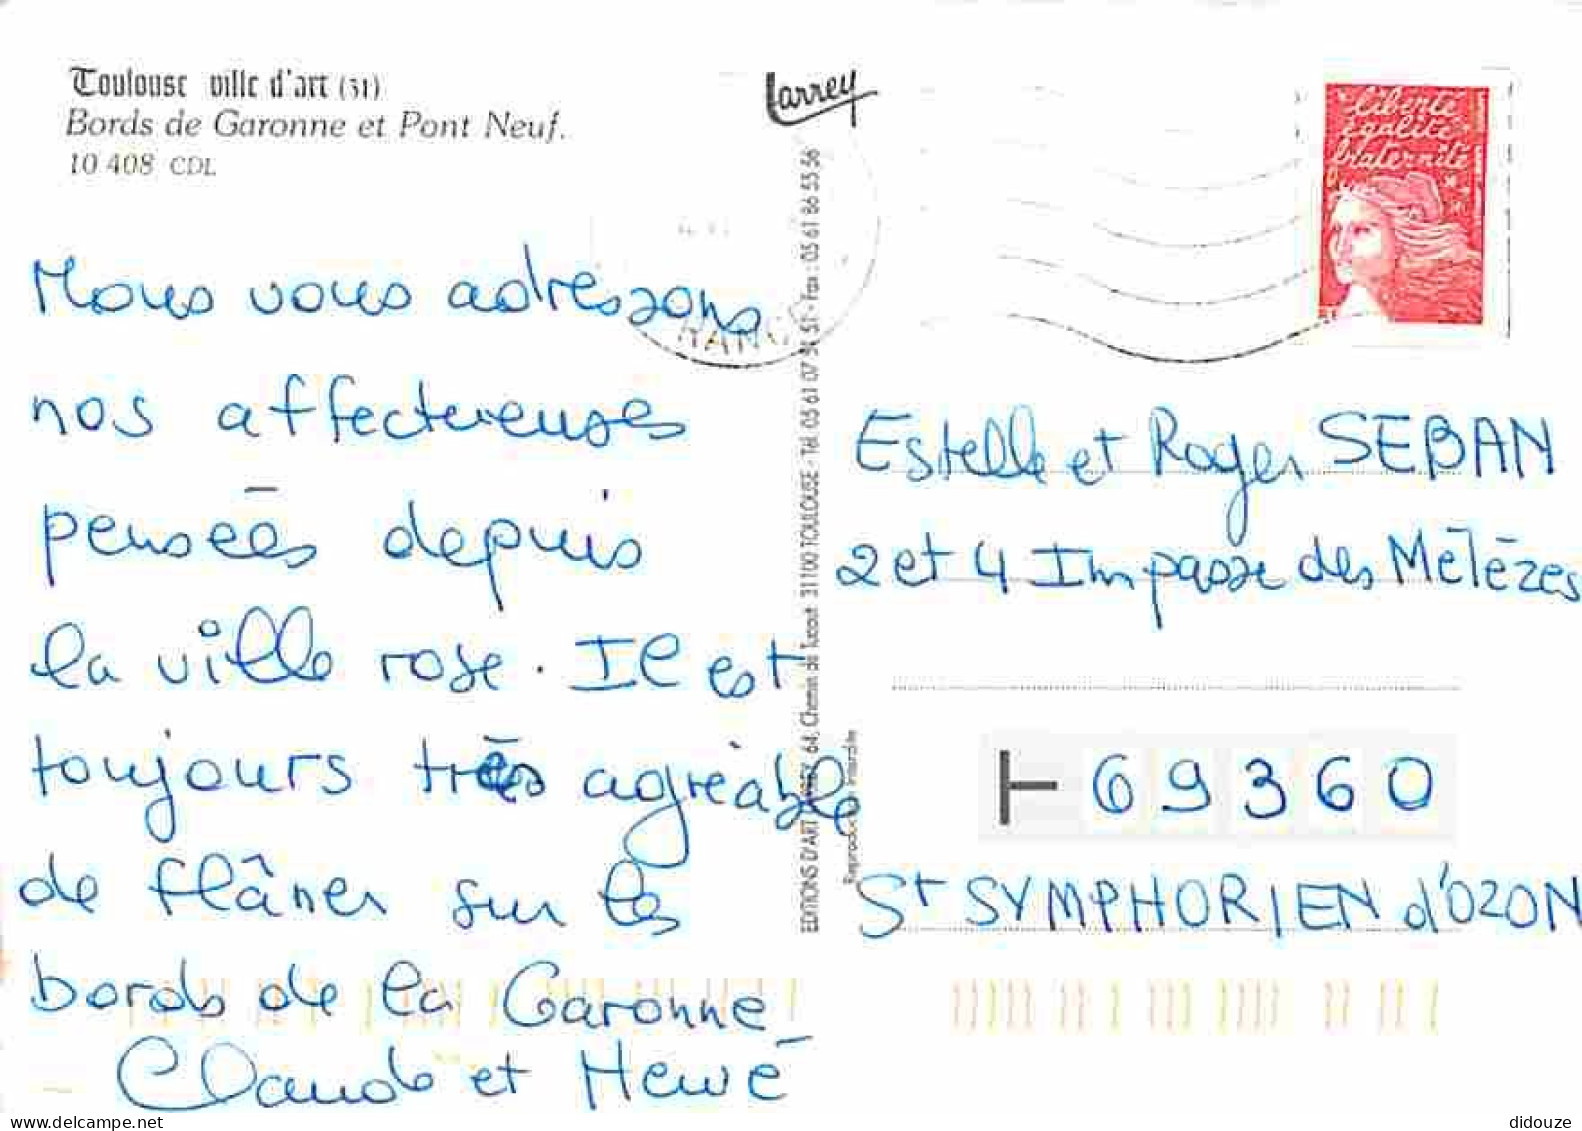 Toulouse ville d'art (31)
Bords de Garonne et Pont Neuf.
10 408 CDL
Larrey
Nous vous adressons
nos affectueuses
pensées depuis
la ville rose. Il est
toujours très agréable
de flâner sur les
bords de la Garonne
Claude et Hervé
EDITIONS D'ART LARREY, 64, Chemin de Tucaut 31100 TOULOUSE - Tél. 05 61 07 54 51 - Fax : 05 61 86 55 56
Reproduction interdite
liberté
égalité
fraternité
Estelle et Roger SEBAN
2 et 4 Impasse des Mélèzes
69360
St SYMPHORIEN d'OZON
delcampe.net
didouze